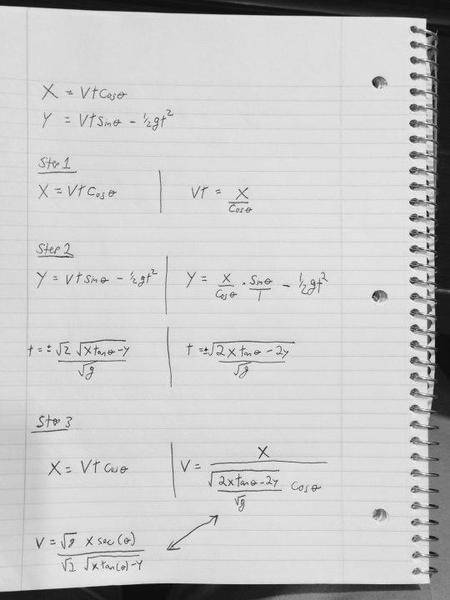 X = Vtcosθ
Y = Vtsinθ - ½gt²
Step 1
X = Vtcosθ | Vt = X/cosθ
Step 2
Y = Vtsinθ - ½gt² | Y = X/cosθ · sinθ/1 - ½gt²
t = ± √2 √(xtanθ-y)/√g | t = ± √(2xtanθ-2y)/√g
Step 3
X = Vtcosθ | V = X/(√(2xtanθ-2y)/√g cosθ)
V = √g x sec(θ)/(√2 √(xtan(θ)-y))